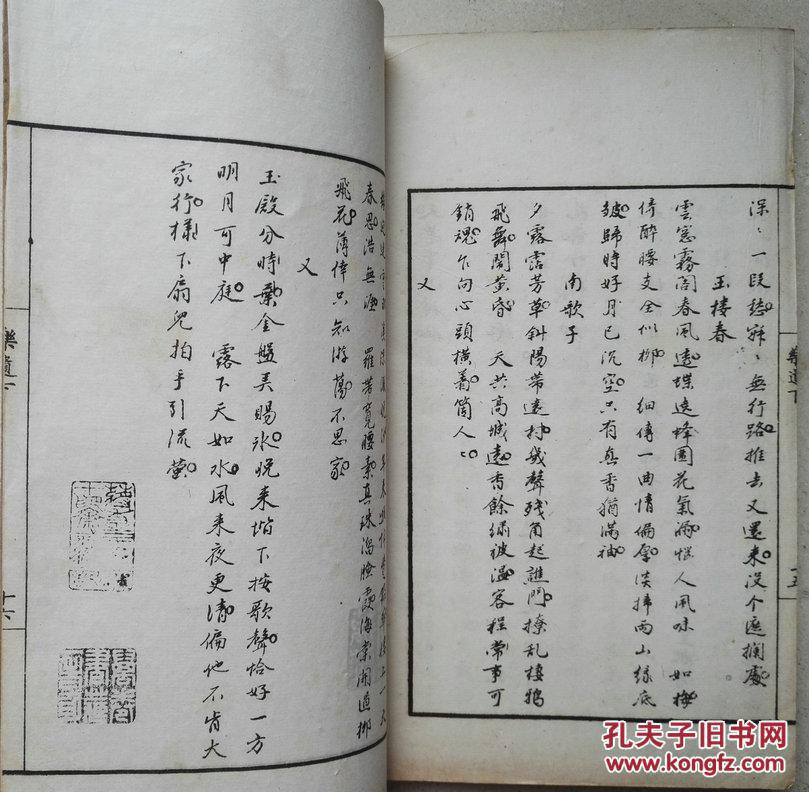 深〻一段愁寐〻無行路推去又還来没个遮攔處
玉楼春
雲窓霧閣春風透蝶遶蜂圍花氣漏恼人風味如梅
倚醉腰支全似柳 細傳一曲情偏厚淡掃兩山緑底
皺歸時好月已沉空只有真香猶滿袖
南歌子
夕露霑芳草斜陽帶遠村幾聲残角起譙門撩乱棲鴉
飛舞閙黄昏 天共高城遠香餘綉被温客程常事可
銷魂乍向心頭横着箇人〻
又
樂遺下
十五
春思浩無涯 羅帶寛腰素真珠溜臉霞海棠開過柳
飛花薄倖只知游蕩不思家
又
玉殿分時菓金盤弄賜冰晚来堦下按歌聲恰好一方
明月可中庭 露下天如水風来夜更清偏他不肯大
家行様下扇兒拍手引流螢
樂遺下
十六
孔夫子旧书网
KONGFZ.COM